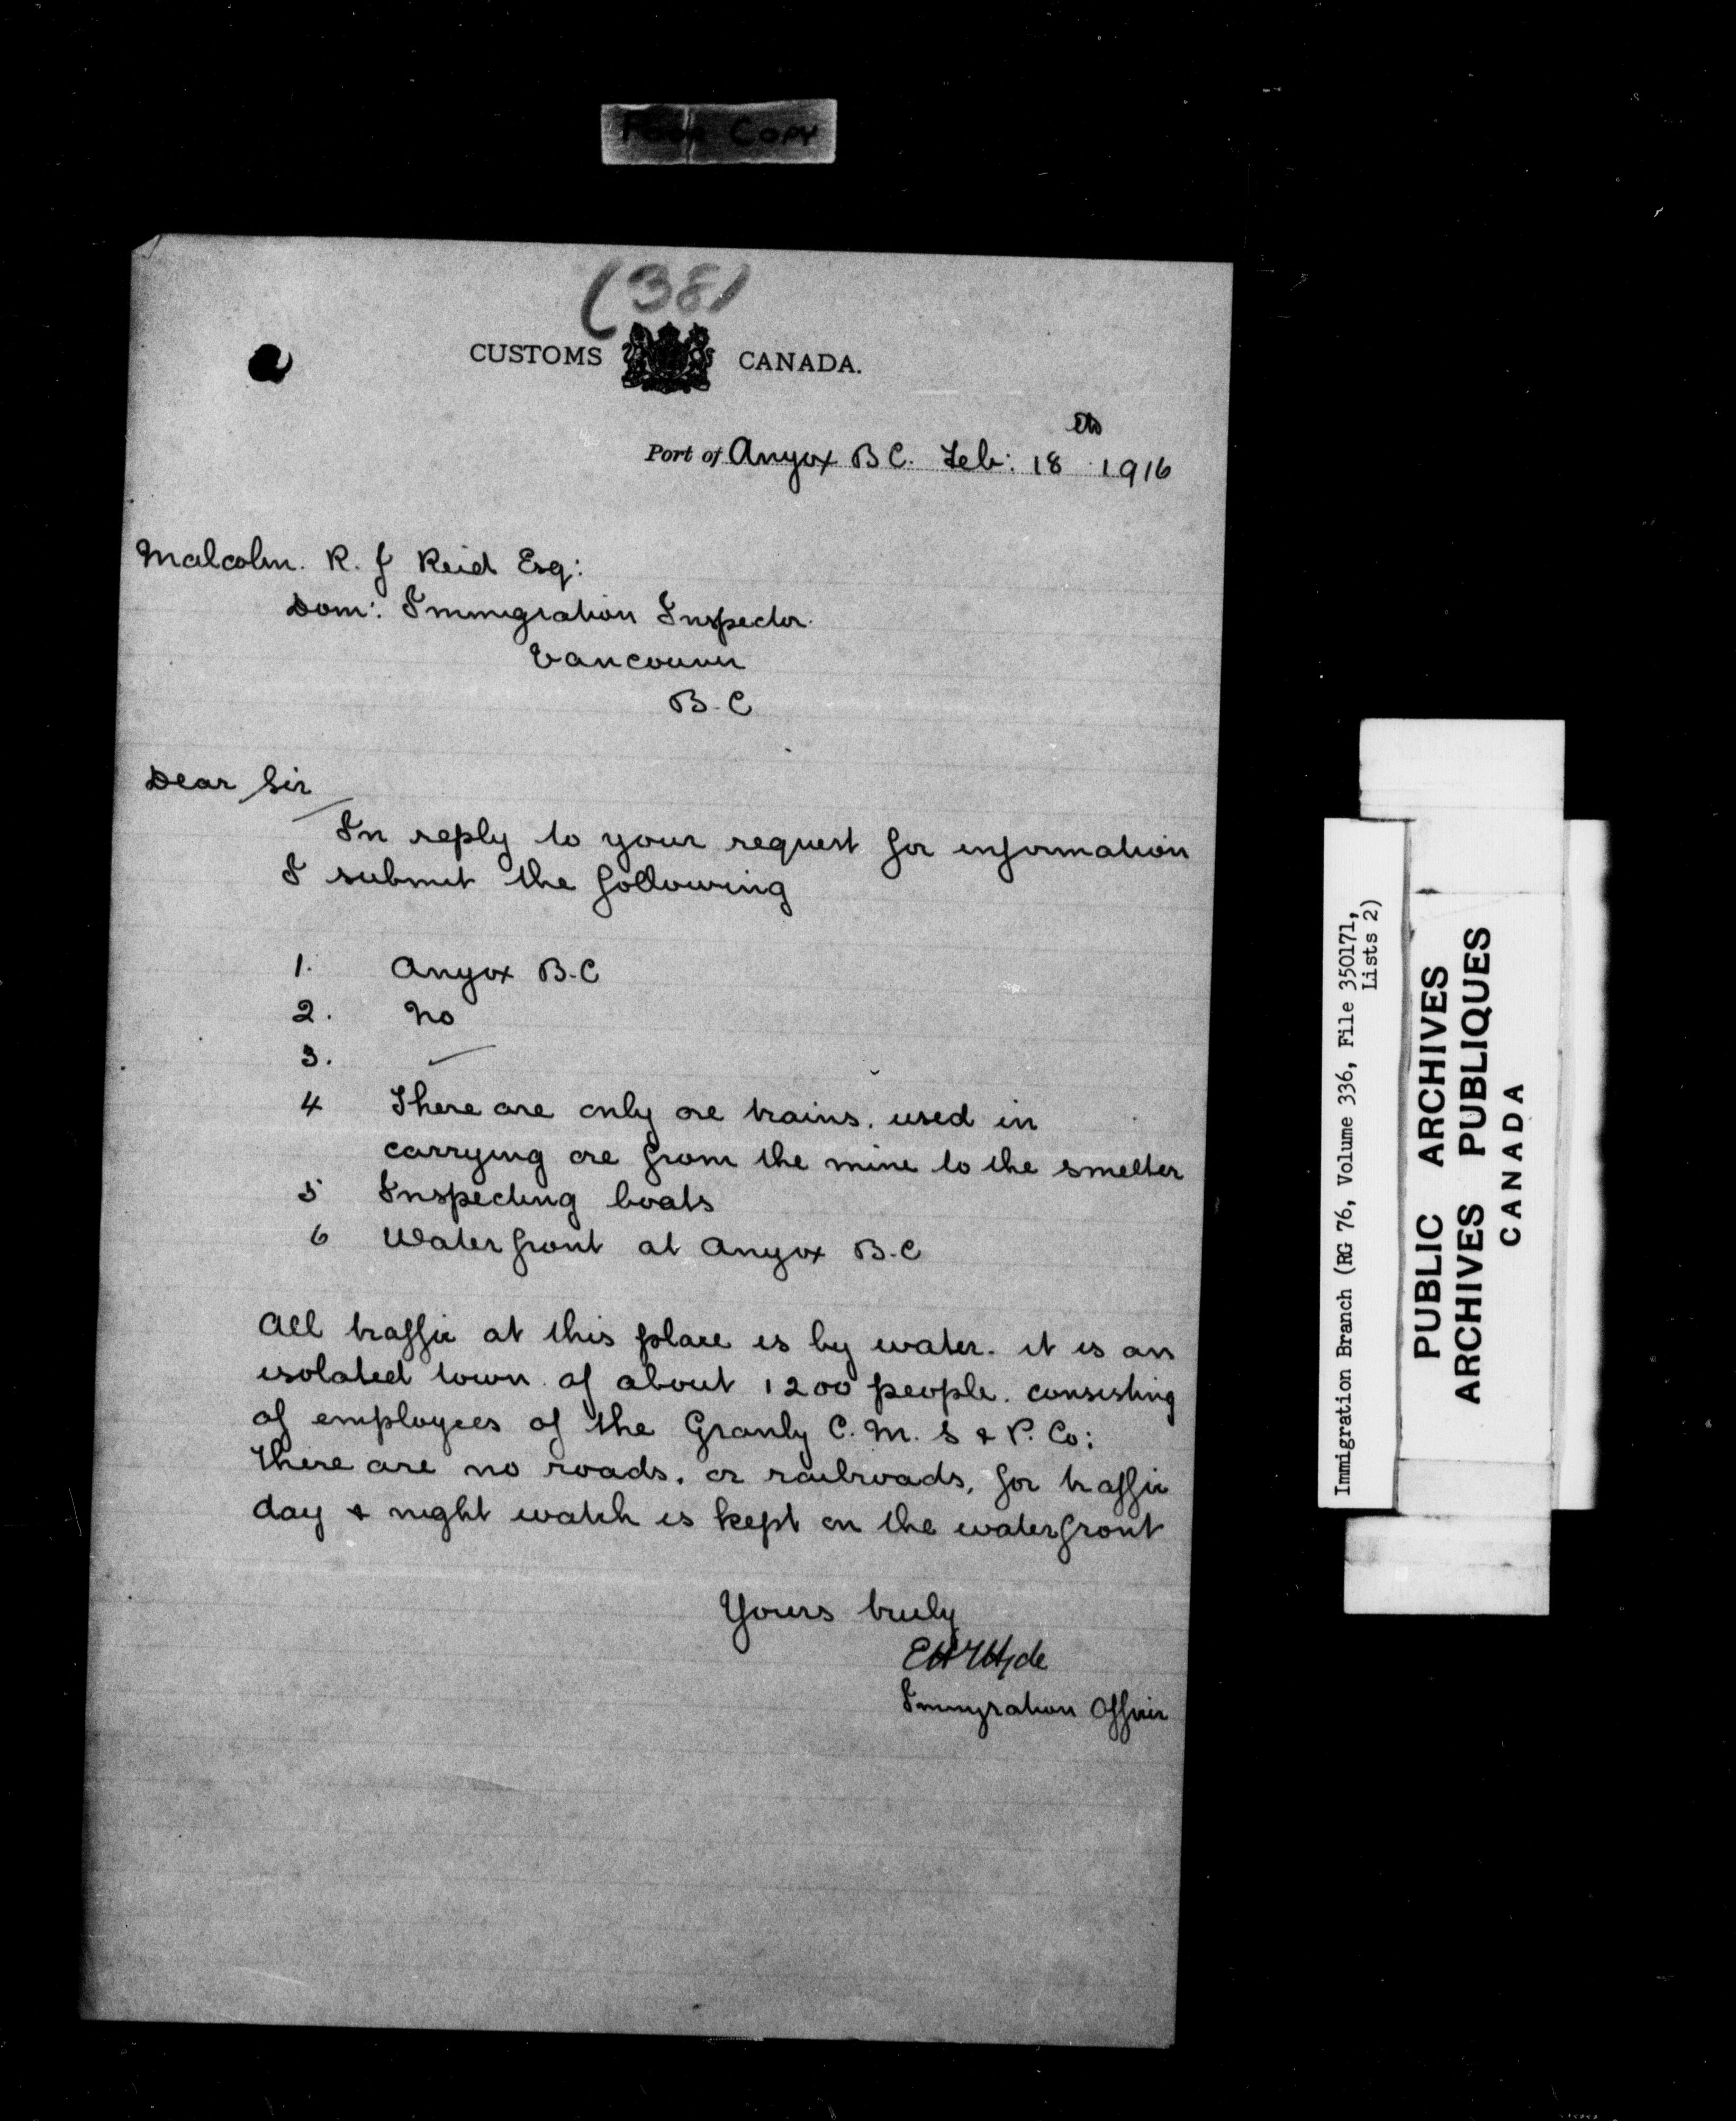 Poor Copy
(38)
CUSTOMS CANADA.
Port of Anyox B C. Feb: 18th 1916
Malcolm. R. J Reid Esq:
Dom: Immigration Inspector.
Vancouver
B. C
Dear Sir
In reply to your request for information
I submit the following
1. Anyox B.C
2. No
3. —
4 There are only ore trains. used in
carrying ore from the mine to the smelter
5 Inspecting boats
6 Water front at Anyox B.C
All traffic at this place is by water. it is an
isolated town of about 1200 people. consisting
of employees of the Granby C. M. S & P. Co:
There are no roads. or railroads, for traffic
day & night watch is kept on the waterfront
Yours truly
Hyde
Immigration Officer
Immigration Branch (RG 76, Volume 336, File 350171,
Lists 2)
PUBLIC ARCHIVES
ARCHIVES PUBLIQUES
CANADA